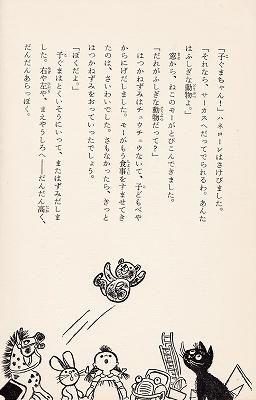 「子ぐまちゃん！」ハネローレはさけびました。
「それなら、サーカスへだってでられるわ。あんた
はふしぎな動物よ。」
窓から、ねこのモーがとびこんできました。
「だれがふしぎな動物だって？」
はつかねずみはチュウチュウないて、子どもべや
からにげだしました。モーがもう食事をすませてき
たのは、さいわいでした。さもなかったら、きっと
はつかねずみをおっていったでしょう。
「ぼくだよ。」
子ぐまはとくいそうにいって、またはずみだしま
した。右や左や、まえやうしろへ——だんだん高く、
だんだんあらっぽく。